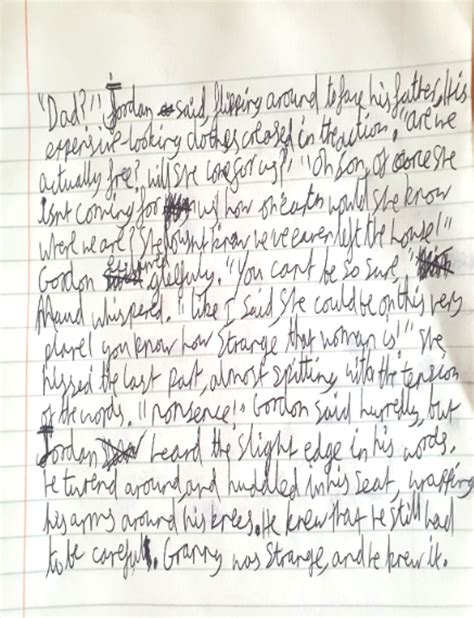 "Dad?" Jordan said, flipping around to face his father, His
expensive-looking clothes creased in the action, "are we
actually free? will she come for us?" "Oh son, of corce she
isnt coming for us how on earth would she know
were we are? She dosn't know we've eaven left the house!"
Gordon gleefuly. "You cant be so sure,"
Maud whispered. "like I said she could be on this very
plane! you know how strange that woman is!" She
hissed the last part, almost spitting with the tension
of the words. "nonsense!" Gordon said hurredly, but
Jordan heard the slight edge in his words.
He turend around, and huddled in his seat, wrapping
his arms around his knees. He knew that he still had
to be careful. Granny was strange, and he knew it.